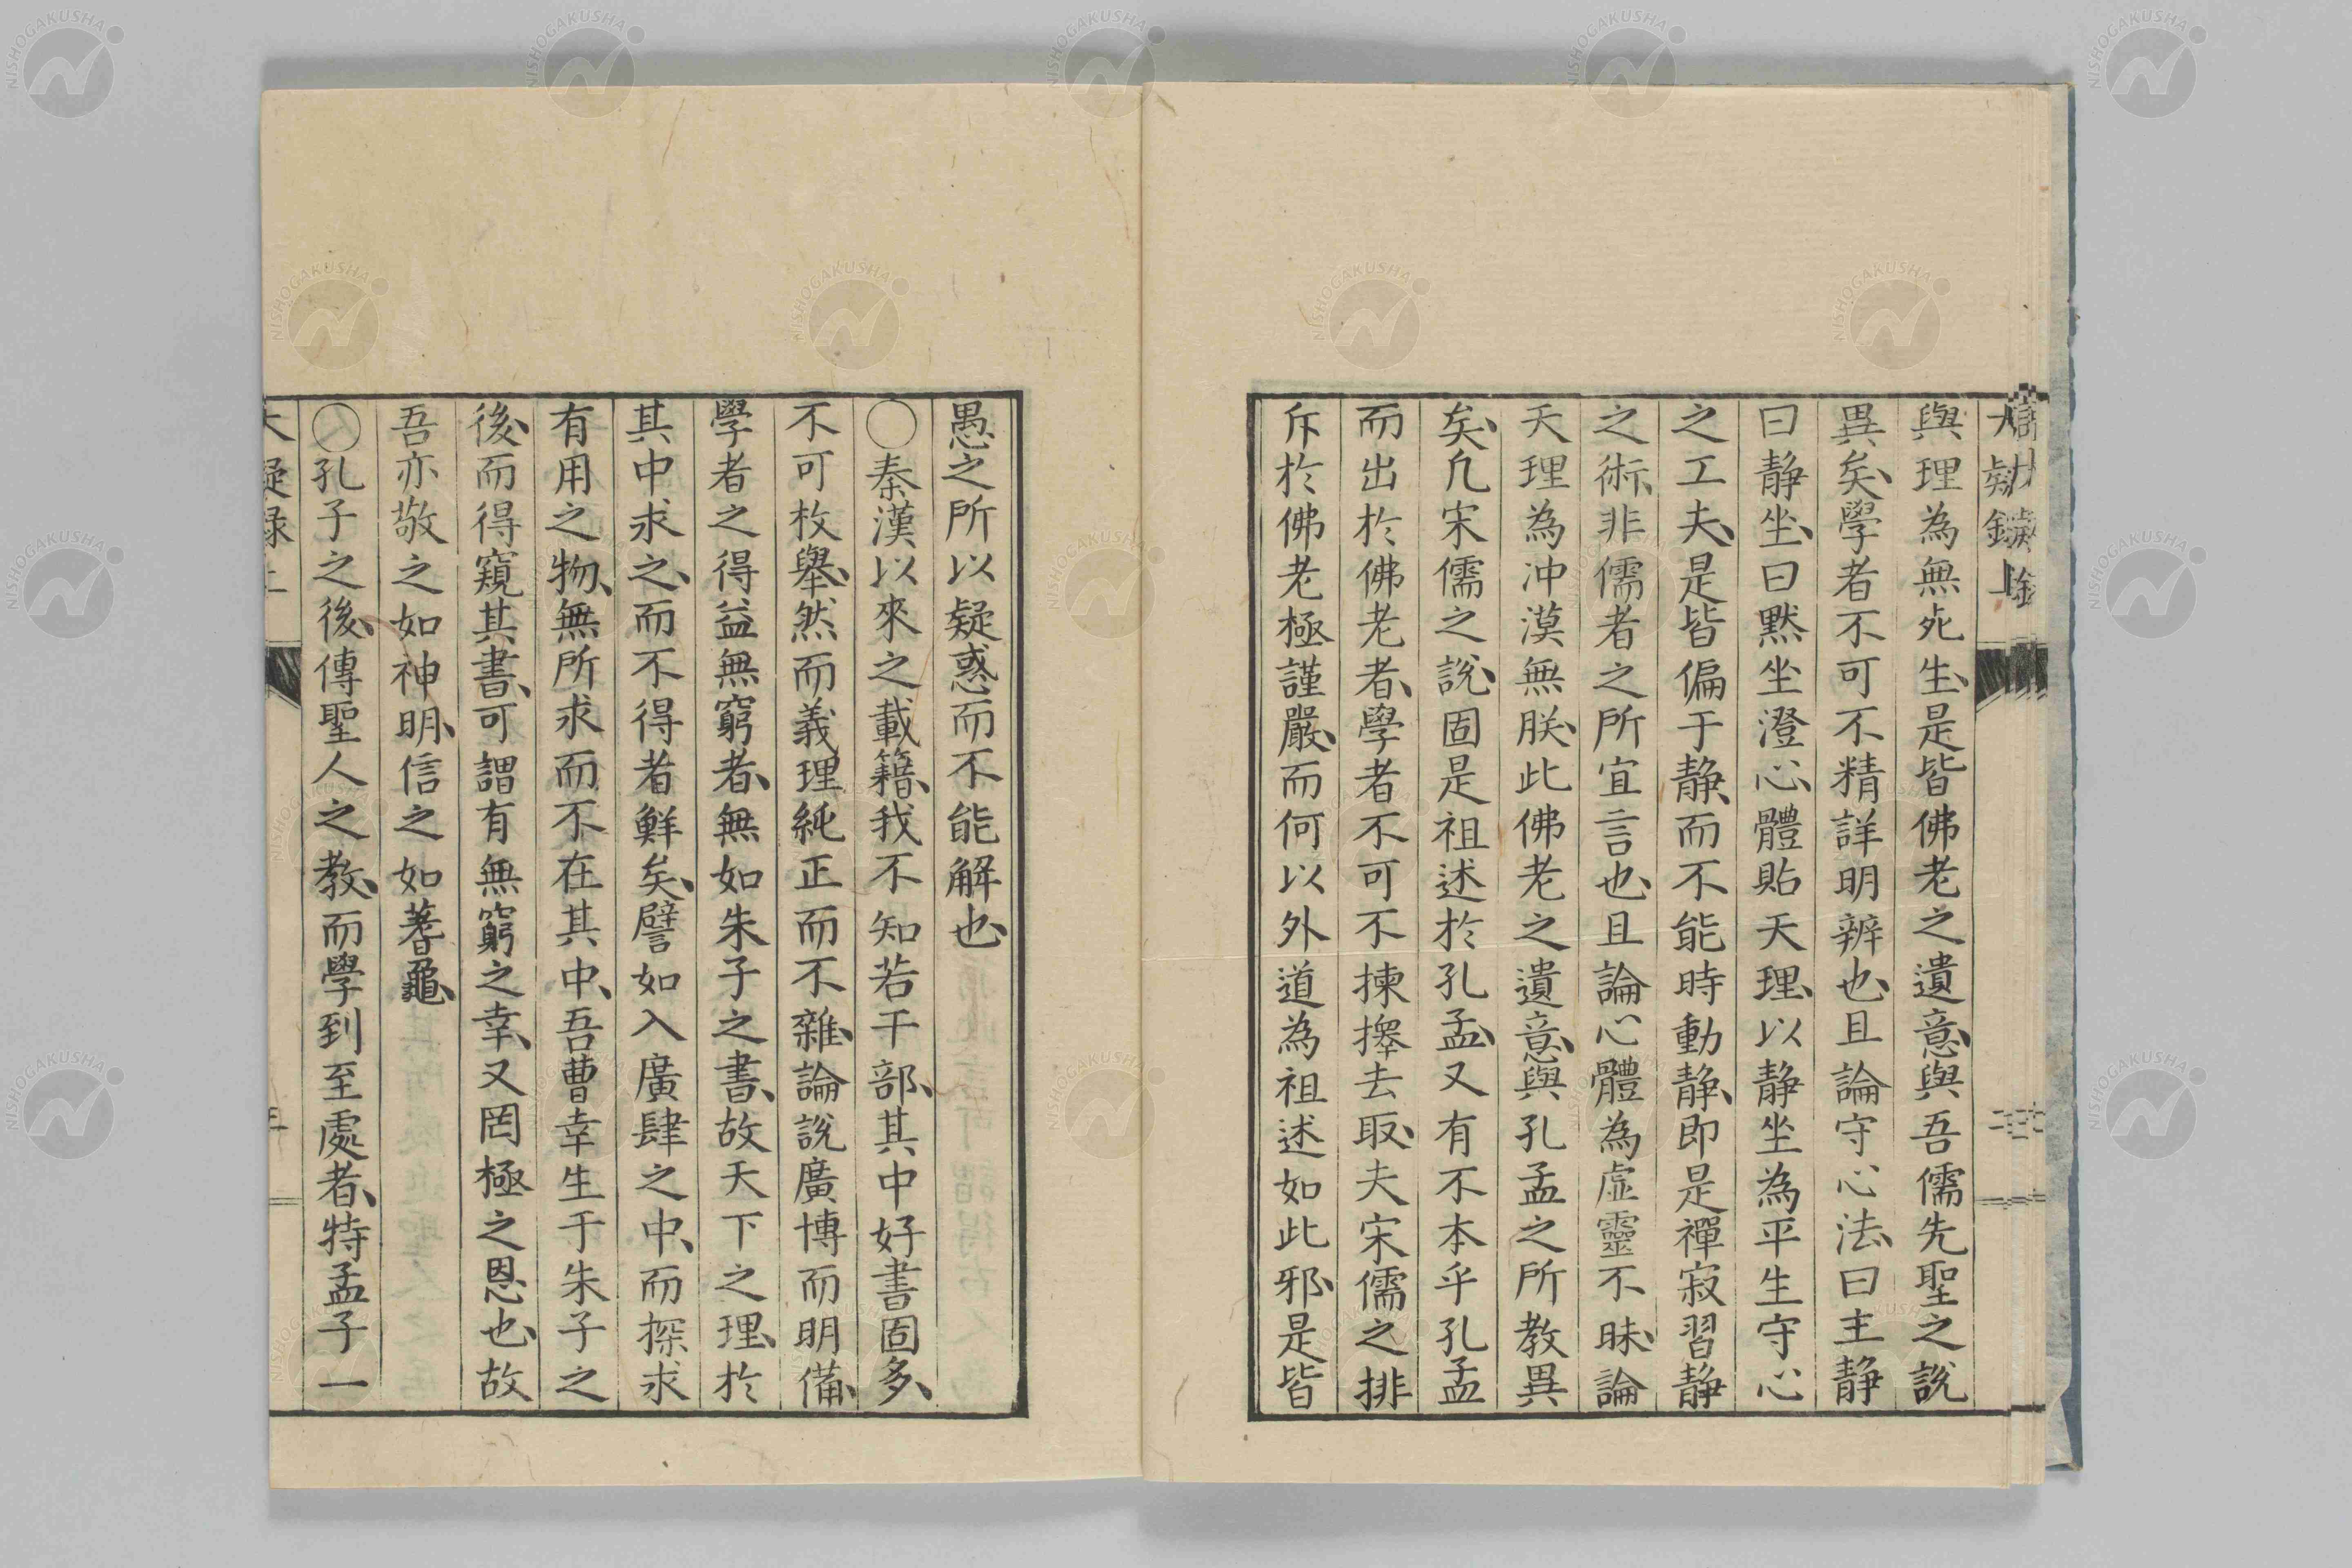 與理為無死生、是皆佛老之遺意、與吾儒先聖之說
異矣、學者不可不精詳明辨也、且論守心法、曰主靜
曰靜坐、曰黙坐澄心、體貼天理、以靜坐為平生守心
之工夫、是皆偏于靜、而不能時動靜、即是禪寂習靜
之術、非儒者之所宜言也、且論心體為虛靈不昧、論
天理為冲漠無朕、此佛老之遺意、與孔孟之所教異
矣、凡宋儒之說、固是祖述於孔孟、又有不本乎孔孟
而出於佛老者、學者不可不揀擇去取、夫宋儒之排
斥於佛老極謹嚴、而何以外道為祖述如此邪、是皆
愚之所以疑惑而不能解也、
○秦漢以來之載籍、我不知若干部、其中好書固多、
不可枚舉、然而義理純正而不雜、論說廣博而明備、
學者之得益無窮者、無如朱子之書、故天下之理、於
其中求之、而不得者鮮矣、譬如入廣肆之中、而探求
有用之物、無所求而不在其中、吾曹幸生于朱子之
後、而得窺其書、可謂有無窮之幸、又罔極之恩也、故
吾亦敬之如神明、信之如蓍龜、
○孔子之後、傳聖人之教、而學到至處者、特孟子一
NISHOGAKUSHA